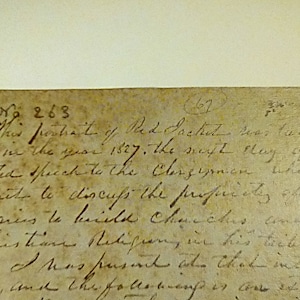 No 263 (67)
This portrait of Red Jacket was
in the year 1827, the next day
speech to the Clergymen
to discuss the propriety of
to build Churches and
Religion, in his
I was present at that
and the following is an